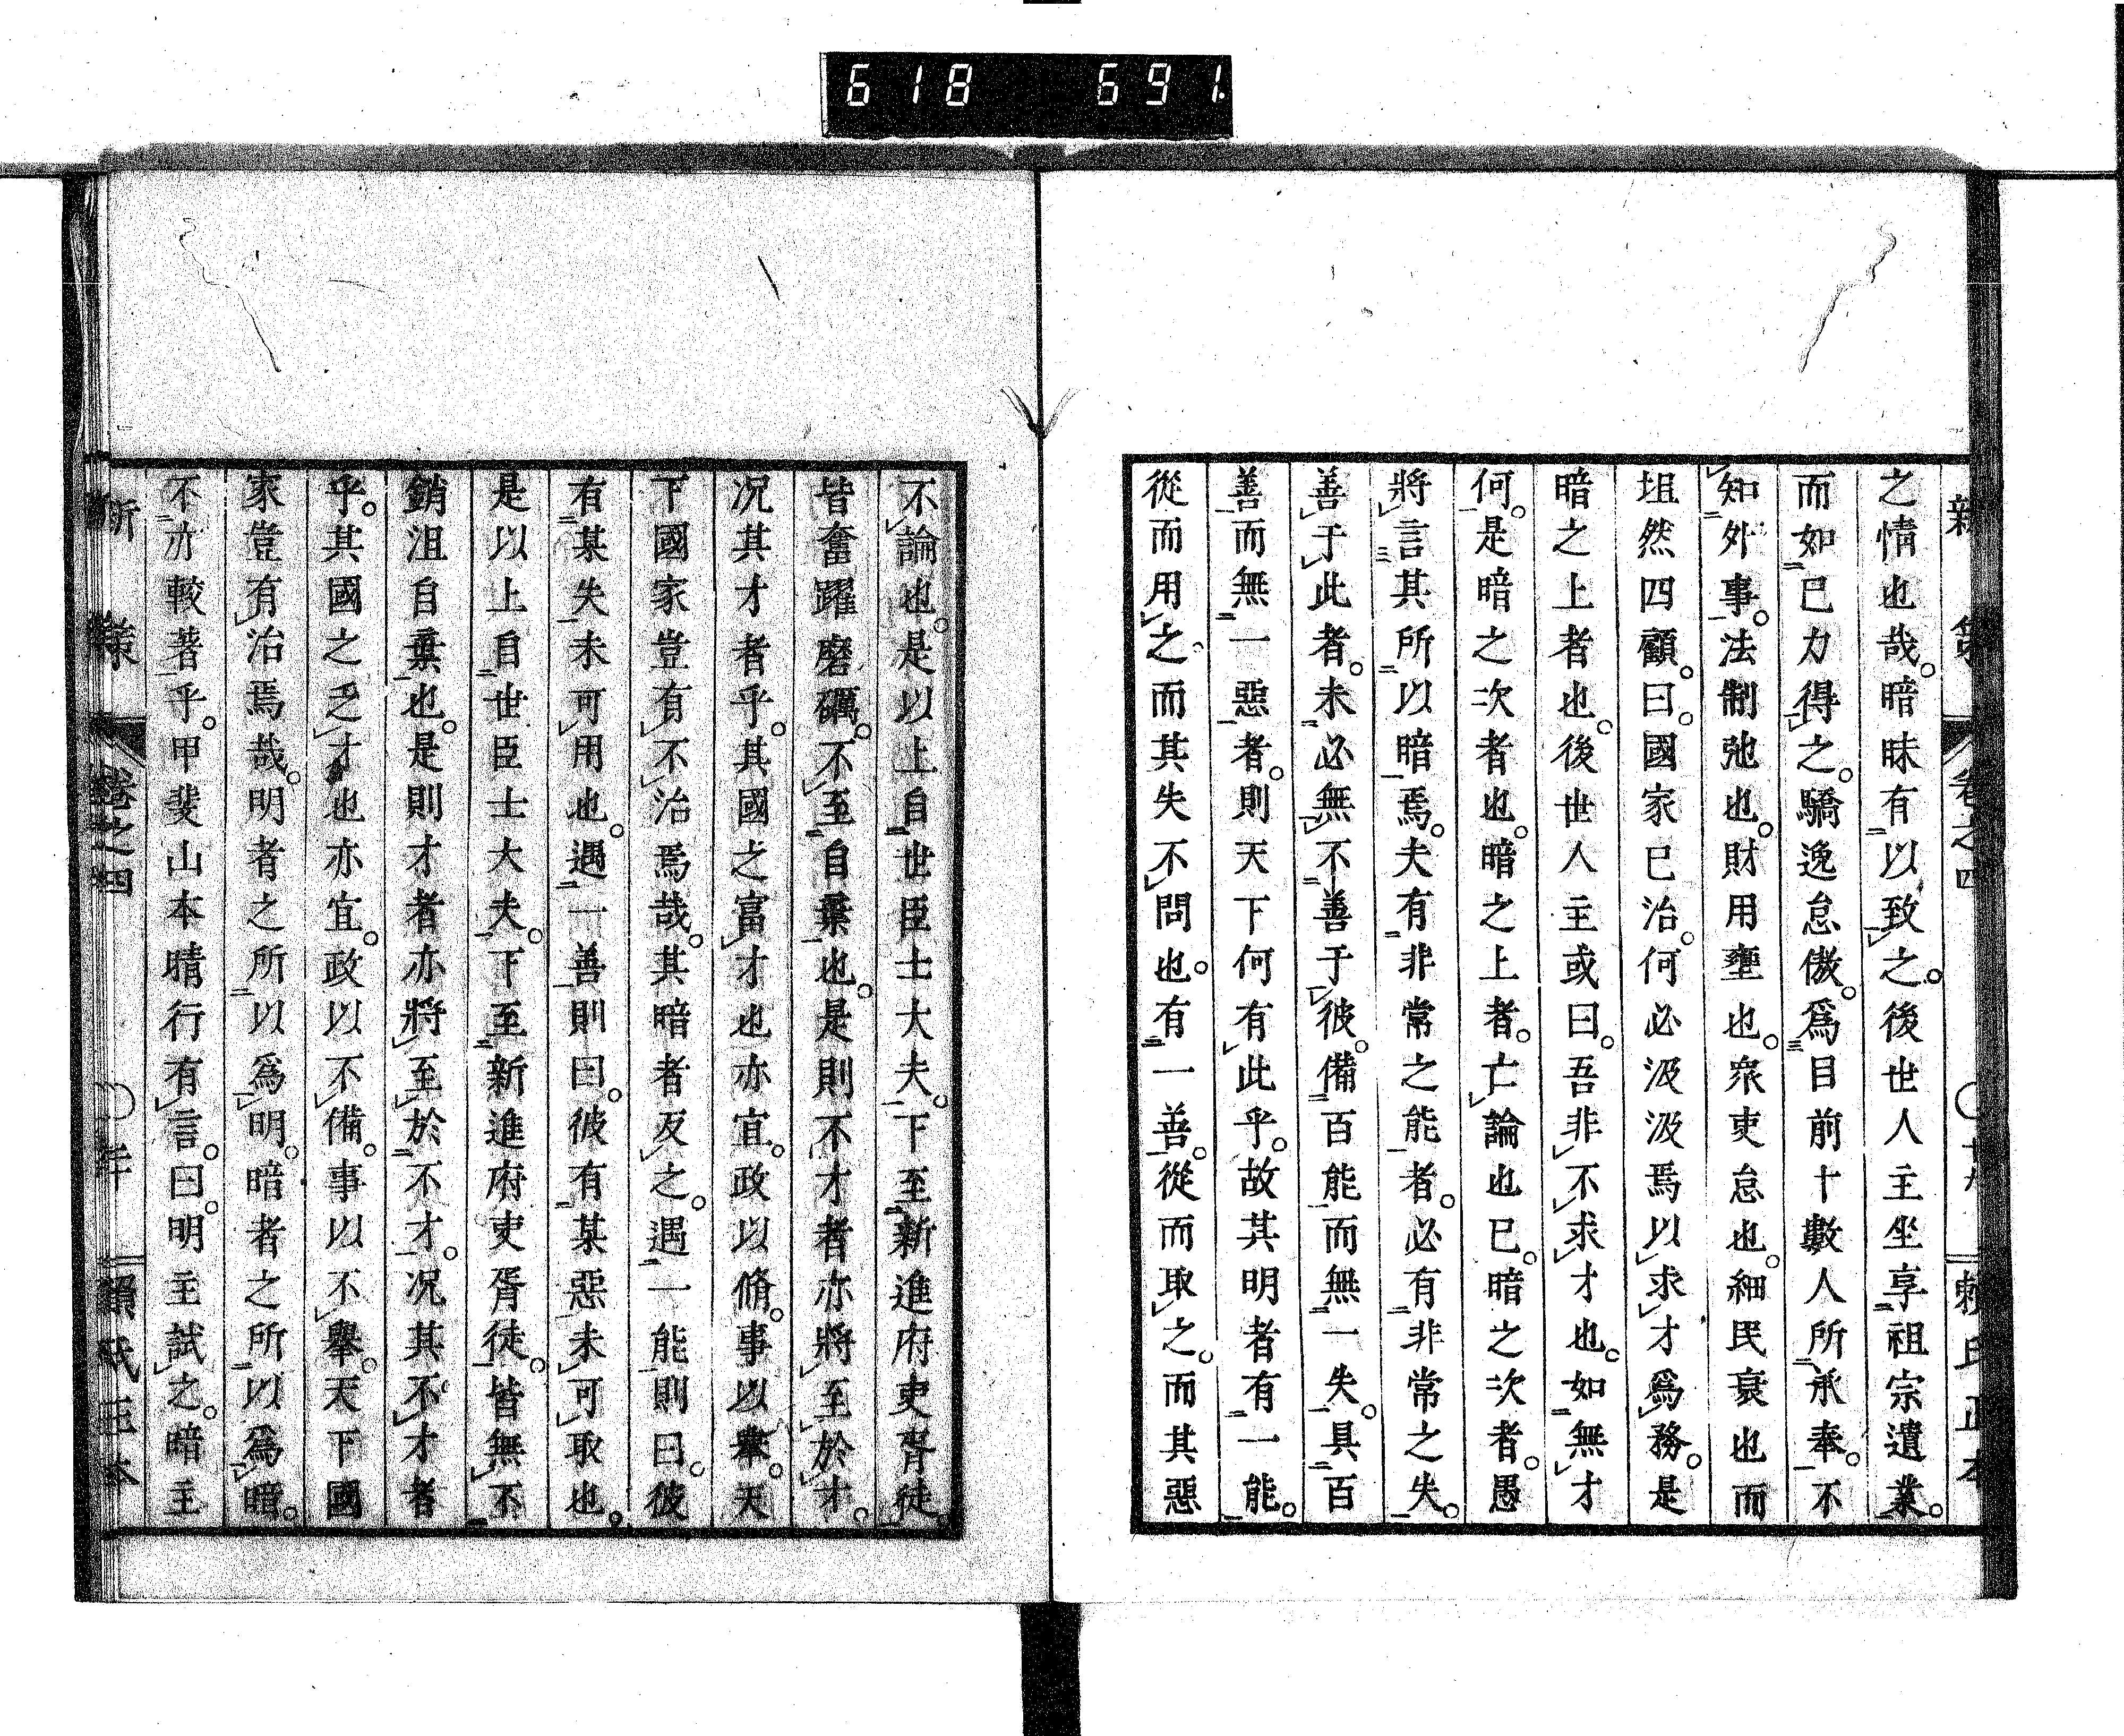 618 691.
新策 卷之四 賴氏正本
之情也哉。暗昧有以致之。後世人主坐享祖宗遺業。
而如已力得之。驕逸怠傲。爲目前十數人所承奉。不
知外事。法制弛也。財用壅也。衆吏怠也。細民衰也而
坦然四顧。曰。國家已治。何必汲汲焉以求才爲務。是
暗之上者也。後世人主或曰。吾非不求才也。如無才
何。是暗之次者也。暗之上者。亡論也已。暗之次者。愚
將言其所以暗焉。夫有非常之能者。必有非常之失。
善于此者。未必無不善于彼。備百能而無一失。具百
善而無一惡者。則天下何有此乎。故其明者有一能。
從而用之、而其失不問也。有一善。從而取之。而其惡
不論也。是以上自世臣士大夫。下至新進府吏胥徒。
皆奮躍磨礪。不至自棄也。是則不才者亦將至於才。
況其才者乎。其國之富才也亦宜。政以脩。事以舉。天
下國家豈有不治焉哉。其暗者反之。遇一能則曰。彼
有某失未可用也。遇一善則曰。彼有某惡未可取也。
是以上自世臣士大夫。下至新進府吏胥徒。皆無不
銷沮自棄也。是則才者亦將至於不才。況其不才者
乎。其國之乏才也亦宜。政以不備。事以不舉。天下國
家豈有治焉哉。明者之所以爲明。暗者之所以爲暗。
不亦較著乎。甲斐山本晴行有言。曰。明主試之。暗主
新策 卷之四 〇 賴氏正本